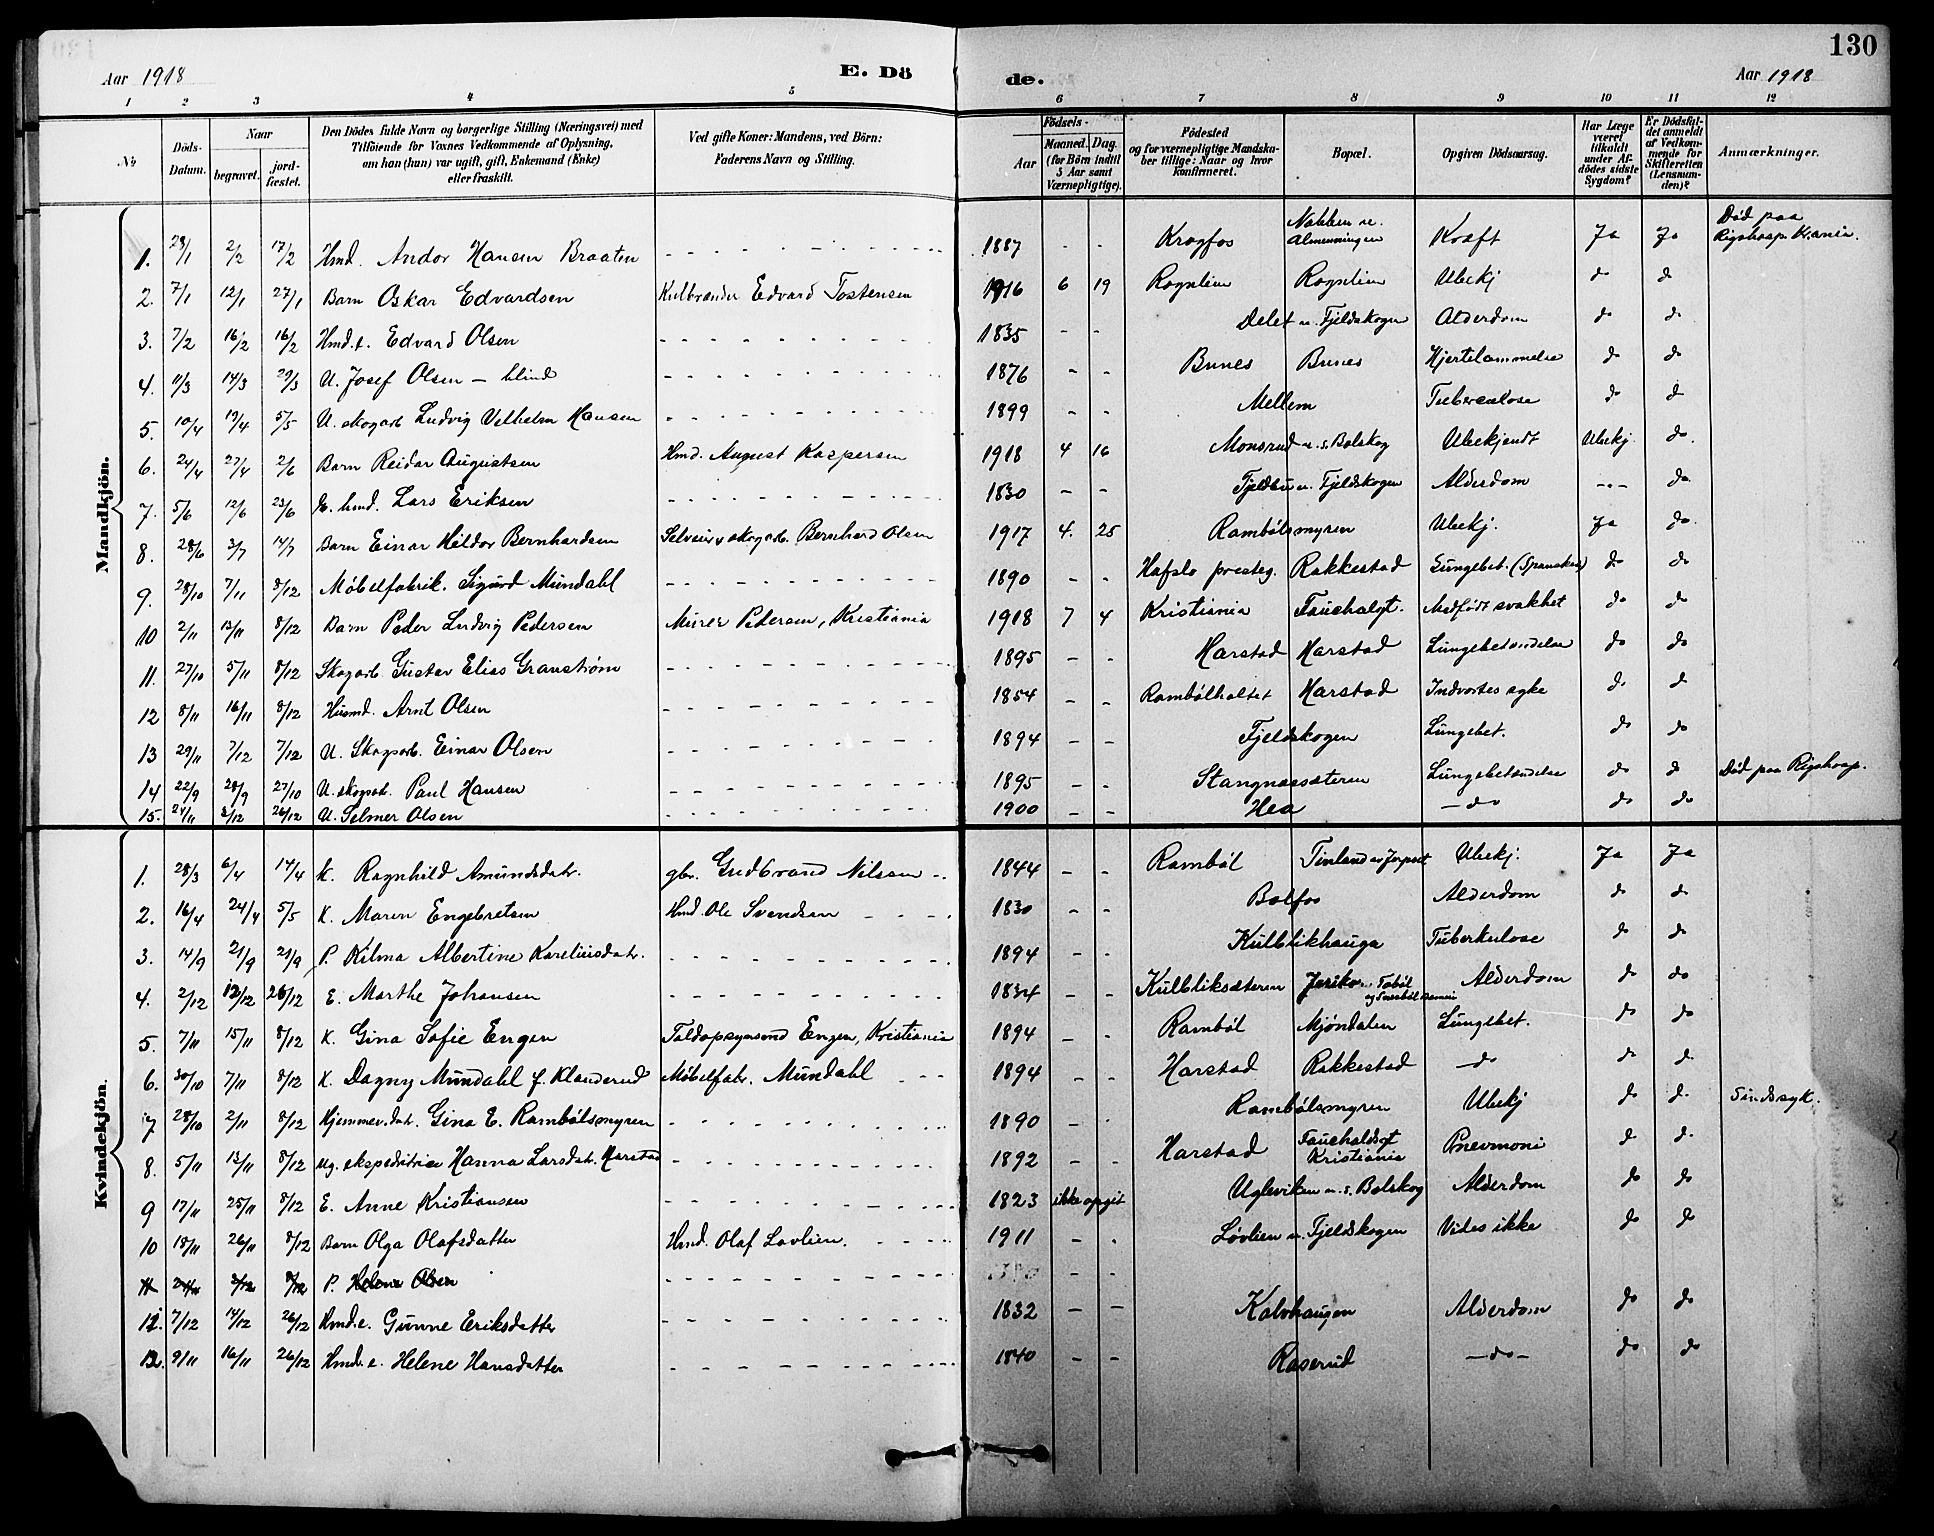 130
Aar 1918 E. Dö de. Aar 1918
1 2 3 4 5 6 7 8 9 10 11 12
No Döds-Datum. Naar begravet. jordfæstet. Den Dödes fulde Navn og borgerlige Stilling (Næringsvei) med Tilföiende for Voxnes Vedkommende af Oplysning, om han (hun) var ugift, gift, Enkemand (Enke) eller fraskilt. Ved gifte Koner: Mandens, ved Börn: Faderens Navn og Stilling. Födsels- Aar Maaned. Dag. (for Börn indtil 5 Aar samt Værnepligtige). Födested og for værnepligtige Mandskaber tillige: Naar og hvor konfirmeret. Bopæl. Opgiven Dödsaarsag. Har Læge været tilkaldt under Afdödes sidste Sygdom? Er Dödsfaldet anmeldt af Vedkommende for Skifteretten (Lensmanden)? Anmærkninger.
Mandkjön.
1. 28/1 2/2 17/2 Hmd. Andor Hansen Braaten - 1887 - - Krogfos Almenningen Kræft Ja Ja Död paa Rigshosp. Kr.ania.
2. 7/1 12/1 27/1 Barn Oskar Edvardsen Kulbrænder Edvard Tostensen 1916 6 19 Rognlien Rognlien Ubekj do d
3. 7/2 16/2 16/2 Hmd.e. Edvard Olsen - 1835 - - Delet u. Fjeldskogen Alderdom do do
4. 11/3 14/3 29/3 U. Josef Olsen - blind - 1876 - - Bunes Bunes Hjertelammelse do do
5. 10/4 19/4 5/5 U. skogarb. Ludvig Vilhelm Hansen - 1899 - - Mellem Tuberculose do do
6. 24/4 27/4 2/6 Barn Reidar Augustsen Hmd. August Kaspersen 1918 4 16 Monsrud u. s. Bolskog Ubekjendt Ubekj. do.
7. 5/6 12/6 23/6 E. hmd. Lars Eriksen - 1830 - - Fjeldbu u. Fjeldskogen Alderdom --- do
8. 28/6 3/7 14/7 Barn Einar Hildor Bernhardsen Selveier skogarb. Bernhard Olsen 1917 4. 25 Rambölsmyren Ubekj. Ja do.
9. 28/10 7/11 8/12 Møbelfabrik. Sigurd Mundahl - 1890 - - Hafslo presteg. Rakkestad Lungebet. (Spanske) do do
10 2/11 13/11 8/12 Barn Peder Ludvig Pedersen Murer Pedersen, Kristiania 1918 7 4 Kristiania Fauchalgt. Medfödt svakhet do do
11. 27/10 5/11 8/12 Skogarb. Gustav Elias Granström - 1895 - - Harstad Harstad Lungebetændelse do do
12 8/11 16/11 8/12 Husmd. Arnt Olsen - 1854 - - Rambölholtet Harstad Indvortes syke do d
13 29/11 7/12 7/12 U. Skogarb. Einar Olsen - 1894 - - Fjeldskogen Lungebet. do do
14 22/9 28/9 27/10 U. skogarb. Paul Hansen - 1895 - - Stangnessæteren Lungebetændelse do d Död paa Rigshosp.
15. 24/11 8/12 26/12 U. Selmer Olsen - 1900 - - Hea - do do do
Kvindekjön.
1. 28/3 6/4 14/4 K. Ragnhild Amundsdatr. gbr. Gudbrand Nilsen 1844 - - Ramböl Ubekj. Ja Ja
2. 16/4 24/4 5/5 K. Maren Engebretsen Hmd. Ole Svendsen 1830 - - Bolfos Alderdom do do
3. 14/9 21/9 21/9 P. Kilma Albertine Kareliusdatr. - 1894 - - Kulblikhauga Tuberkulose do do
4. 2/12 12/12 26/12 E. Marthe Johansen - 1834 - - Kulbliksæteren Alderdom do do
5. 7/11 15/11 8/12 K. Gina Sofie Engen Toldopsynsmd Engen, Kristiania 1894 - - Ramböl Mjöndalen Lungebet. do do
6. 30/10 7/11 8/12 K. Dagny Mundahl f. Klanderud Møbelfabr. Mundahl 1894 - - Harstad Rakkestad - do do do
7 28/10 2/11 8/12 Hjemmev.datr. Gina E. Rambölsmyren - 1890 - - Rambölsmyren Ubekj do do Sindssyk.
8. 5/11 13/11 8/12 Ug. ekspeditrice Hanna Larsdatr. Harstad - 1892 - - Harstad Fauchaldsgt Kristiania Pnevmoni do do
9 17/11 25/11 8/12 E. Anne Kristiansen - 1823 ikke opgit Ugleviken u. s. Bolskog Alderdom do do
10 18/11 26/11 8/12 Barn Olga Olafsdatter Hmd. Olaf Lovlien. 1911 - - Lövlien u. Fjeldskogen Vides ikke do do
11 24/11 8/12 8/12 P. Helene Olsen - - -
12. 7/12 14/12 26/12 Hmd.e. Gunne Eriksdatter - 1832 - - Kalvhaugen Alderdom do do
12. 9/11 16/11 26/12 Hmd.e. Helene Hansdatter - 1840 - - Raserud - do - do do